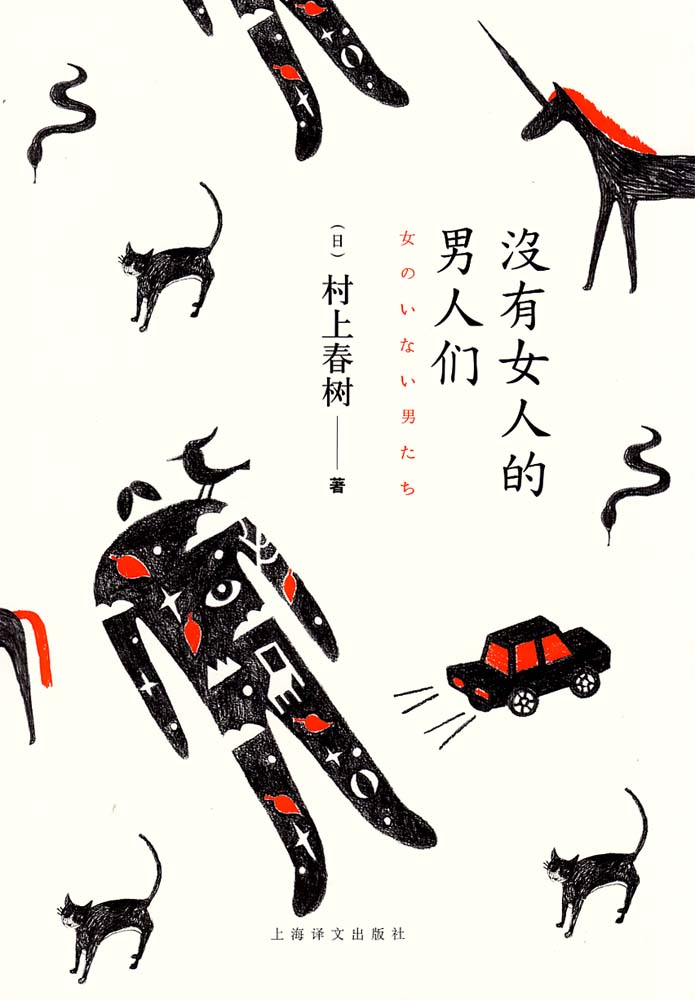 沒有女人的
男人们
女のいない男たち
(日)村上春树——著
上海译文出版社